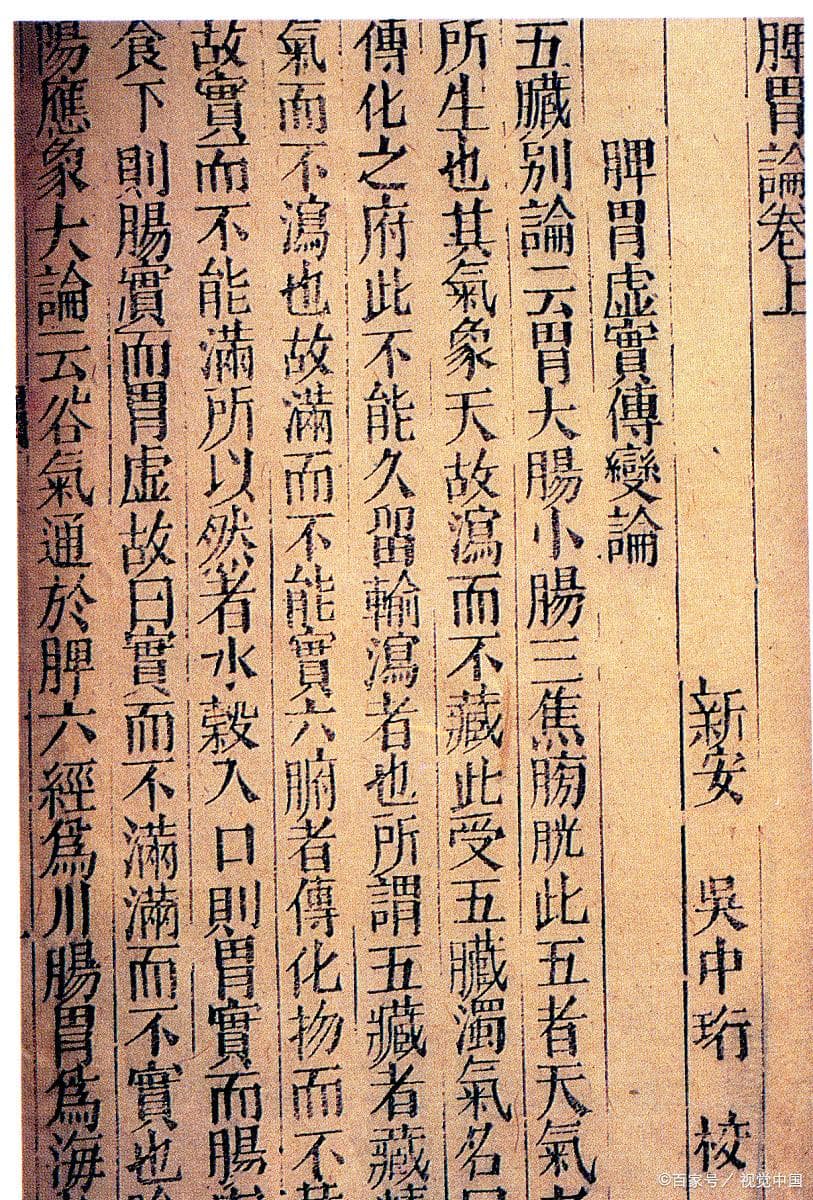 脾胃論卷上
新安 吳中珩 校
脾胃虚實傳變論
五臟别論云胃大腸小腸三焦膀胱此五者天氣
所生也其氣象天故瀉而不藏此受五臟濁氣名
傳化之府此不能久留輸瀉者也所謂五藏者藏精
氣而不瀉也故滿而不能實六腑者傳化物而不
故實而不能滿所以然者水穀入口則胃實而腸
食下則腸實而胃虚故曰實而不滿滿而不實也
陽應象大論云谷氣通於脾六經爲川腸胃爲海
©百家号/视觉中国